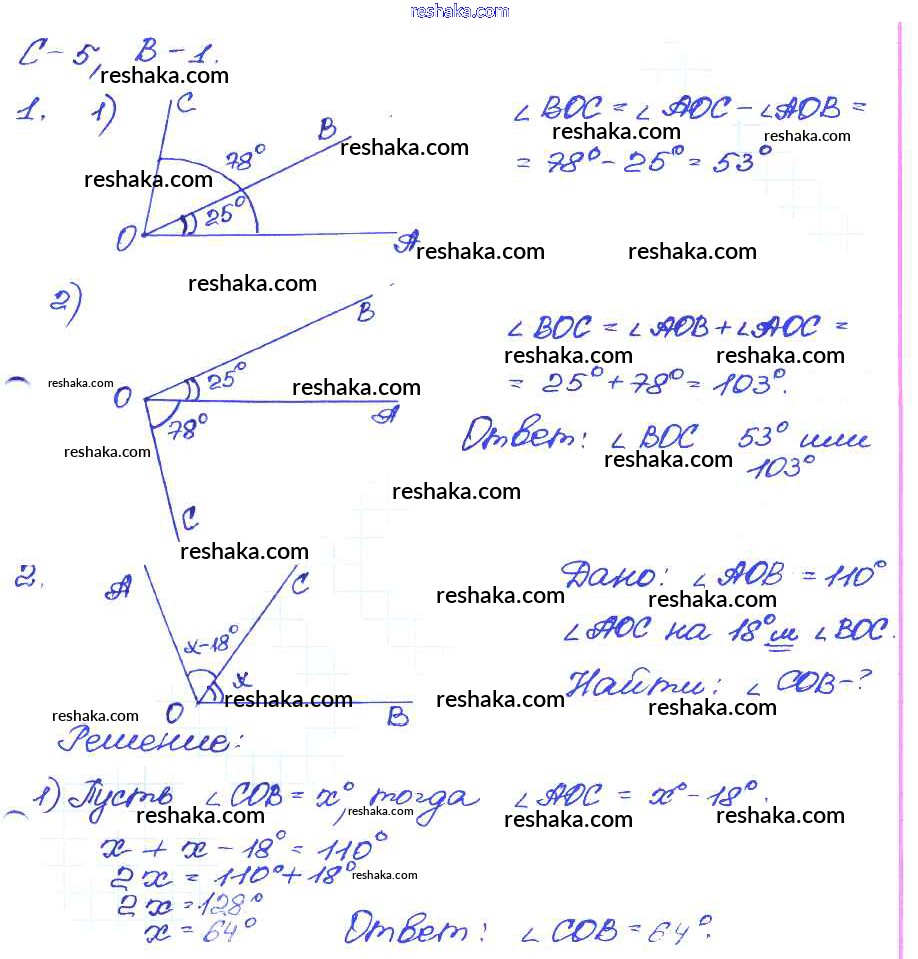 reshaka.com
С-5, В-1.
reshaka.com
1. 1) C B 78° 25° O A
∠BOC = ∠AOC - ∠AOB =
= 78° - 25° = 53°
reshaka.com reshaka.com reshaka.com reshaka.com
reshaka.com reshaka.com
reshaka.com
2) B 25° O A 78° C
∠BOC = ∠AOB + ∠AOC =
= 25° + 78° = 103°.
reshaka.com reshaka.com
reshaka.com reshaka.com
Ответ: ∠BOC 53° или
103°
reshaka.com reshaka.com
reshaka.com
reshaka.com
2. A C x-18° x O B
Дано: ∠AOB = 110°
reshaka.com reshaka.com
∠AOC на 18° м ∠BOC.
Найти: ∠COB-?
reshaka.com reshaka.com reshaka.com
reshaka.com
Решение:
1) Пусть ∠COB = x°, тогда ∠AOC = x° - 18°.
reshaka.com reshaka.com reshaka.com reshaka.com
x + x - 18° = 110°
2x = 110° + 18°
reshaka.com
2x = 128°
x = 64°
Ответ: ∠COB = 64°.